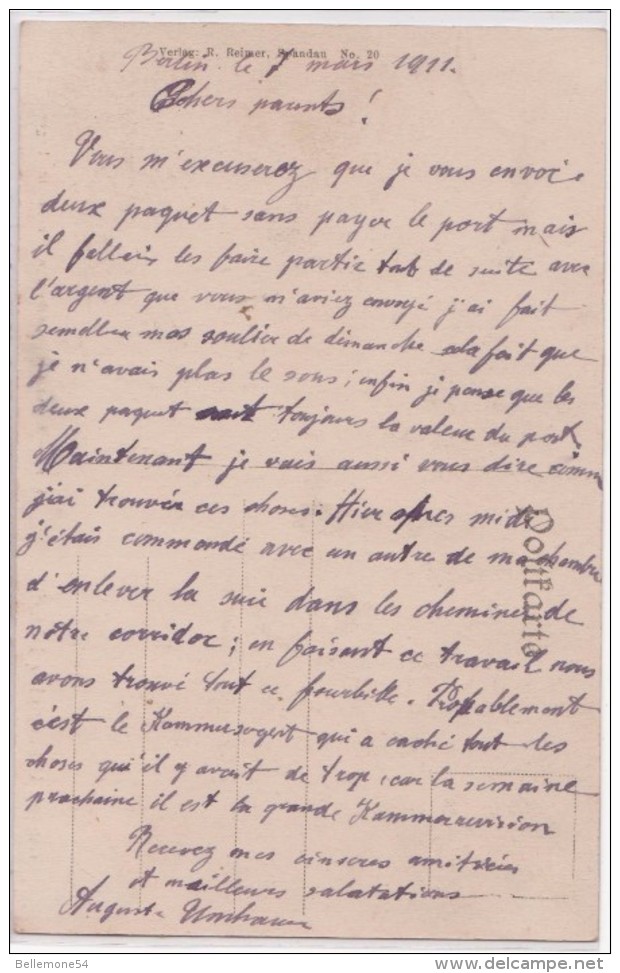 Verlag: R. Reimer, Spandau No. 20
Berlin le 7 mars 1911.
Chers parents!
Vous m'excuserez que je vous envoie
deux paquet sans payer le port mais
il fallait les faire partir tout de suite avec
l'argent que vous m'aviez envoyé j'ai fait
semeller mes soulier de dimanche cela fait que
je n'avais plas le sous; enfin je pense que les
deux paquet vaut toujours la valeur du port.
Maintenant je vais aussi vous dire comm
j'ai trouvér ces choses: Hier après midi
j'étais commandé avec un autre de ma chambre
d'enlever la suie dans les cheminés de
nôtre corridor; en faisant ce travail nous
avons trouvé tout ce fourbille. Propablement
c'est le qui a caché tout les
choses qu'il y avait de trop, car la semaine
prochaine il est la grande Kammerrevision
Recevez mes sinseres amitiées
et meilleurs salutations
Auguste
Postkarte
Bellemone54